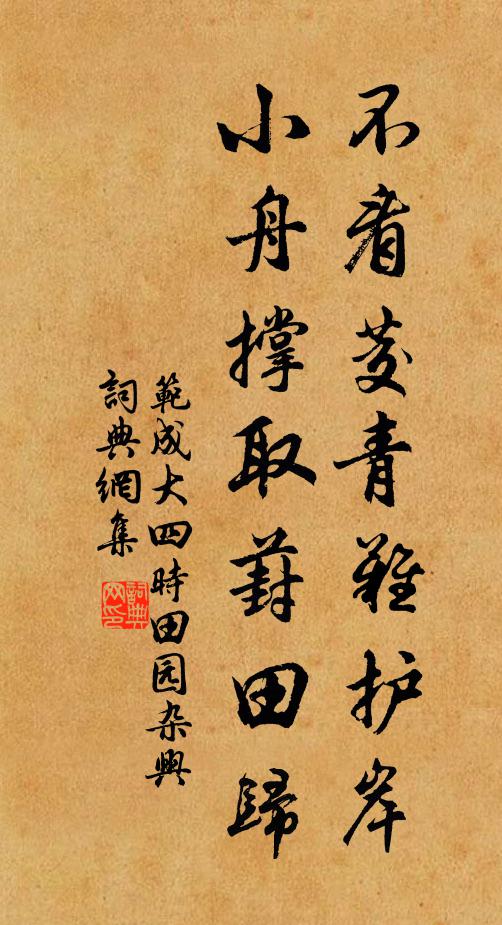 不看茭青難护岸
小舟撑取葑田歸
範成大四時田园杂興
詞典網集
詞典网印